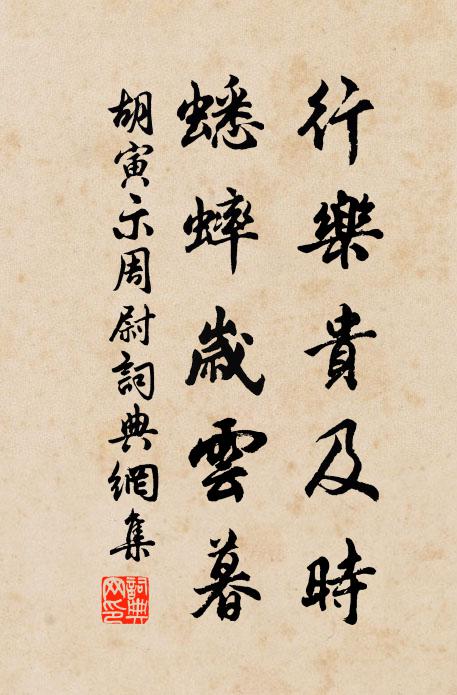 行樂貴及時
蟋蟀歲雲暮
胡寅示周尉詞典網集
詞典網印